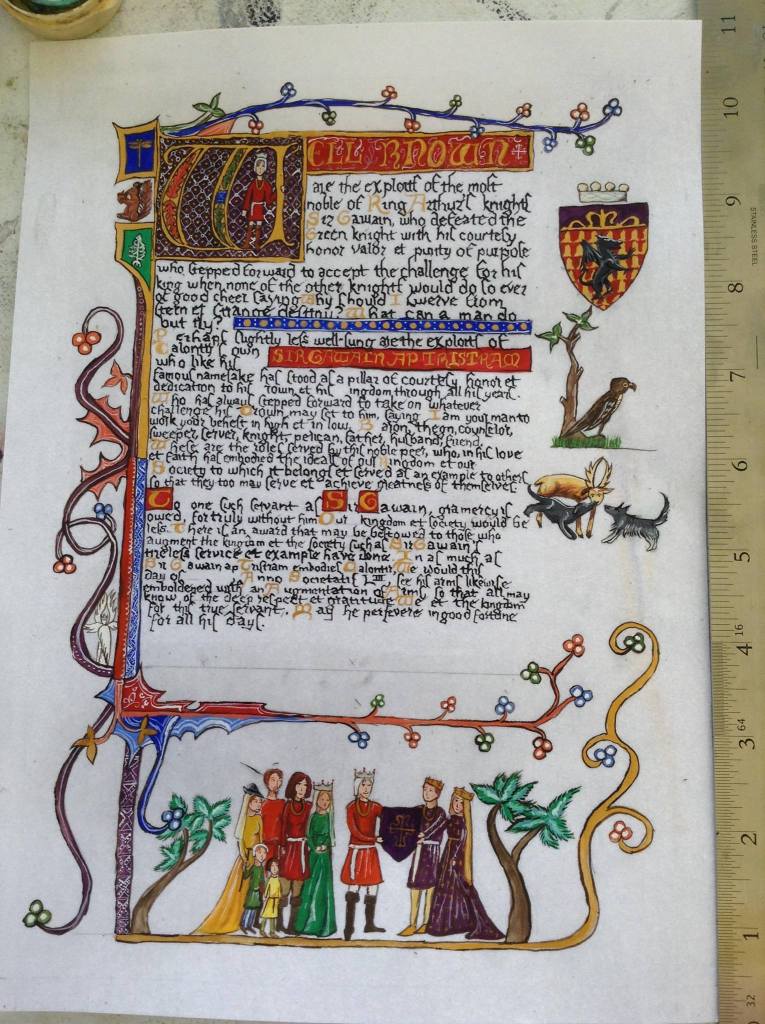 WELL KNOWN
are the exploits of the most
noble of King Arthur's knights
Sir Gawain, who defeated the
Green knight with his courtesy
honor valor et purity of purpose
who stepped forward to accept the challenge for his
king when none of the other knights would do so ever
of good cheer saying Why should I swerve from
stern et strange destiny? What can a man do
but try?
Perhaps slightly less well-sung are the exploits of
Calontir's own SIR GAWAIN AP TRISTRAM
who like his
famous namesake has stood as a pillar of courtesy honor et
dedication to his Crown et Kingdom through all his years.
Who has always stepped forward to take on whatever
challenge his Crown may set to him, saying I am your man to
work your behest in high et in low. Baron, thegn, counselor,
sweeper, server, knight, pelican, father, husband, friend,
These are the roles served by this noble peer, who, in his love
et faith has embodied the ideals of our Kingdom et our
Society to which it belongs et served as an example to others
so that they too may serve et achieve greatness of themselves.
To one such servant as Sir Gawain, gramercy is
owed, for truly without him Our kingdom et society would be
less. There is an award that may be bestowed to those who
augment the kingdom et the society such as Sir Gawain's
tireless service et example have done. In as much as
Sir Gawain ap Tristram embodies Calontir We would this
day of Anno Societatis see his arms likewise
emboldened with an Augmentation of Arms so that all may
know of the deep respect et gratitude We et the kingdom
for this true servant. May he persevere in good fortune
for all his days.
11
10
9
8
7
6
5
4
3
2
1
16
64
32
STAINLESS STEEL